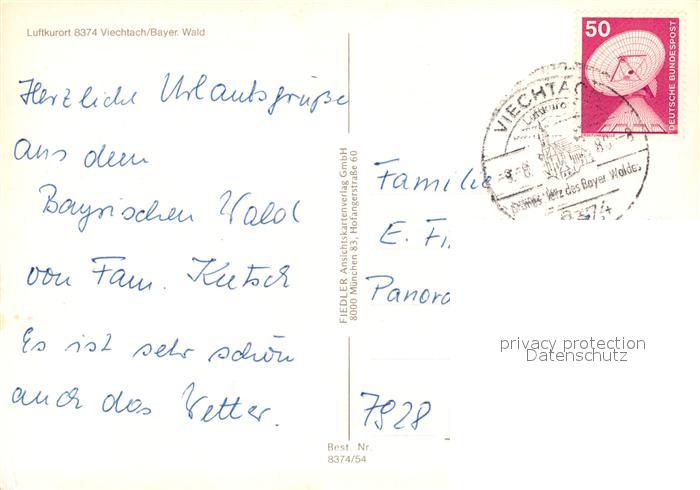 Luftkurort 8374 Viechtach/Bayer. Wald
Herzliche Urlaubsgrüße
aus dem
Bayrischen Wald
von Fam. Kutsch
Es ist sehr schön
auch das Wetter.
FIEDLER Ansichtskartenverlag GmbH
8000 München 83, Hofangerstraße 60
Best. Nr.
8374/54
50
DEUTSCHE BUNDESPOST
VIECHTAC
Luftkuro
Herz des Bayer Waldes
8374
Familie
E. Fi
Panora
7928
privacy protection
Datenschutz